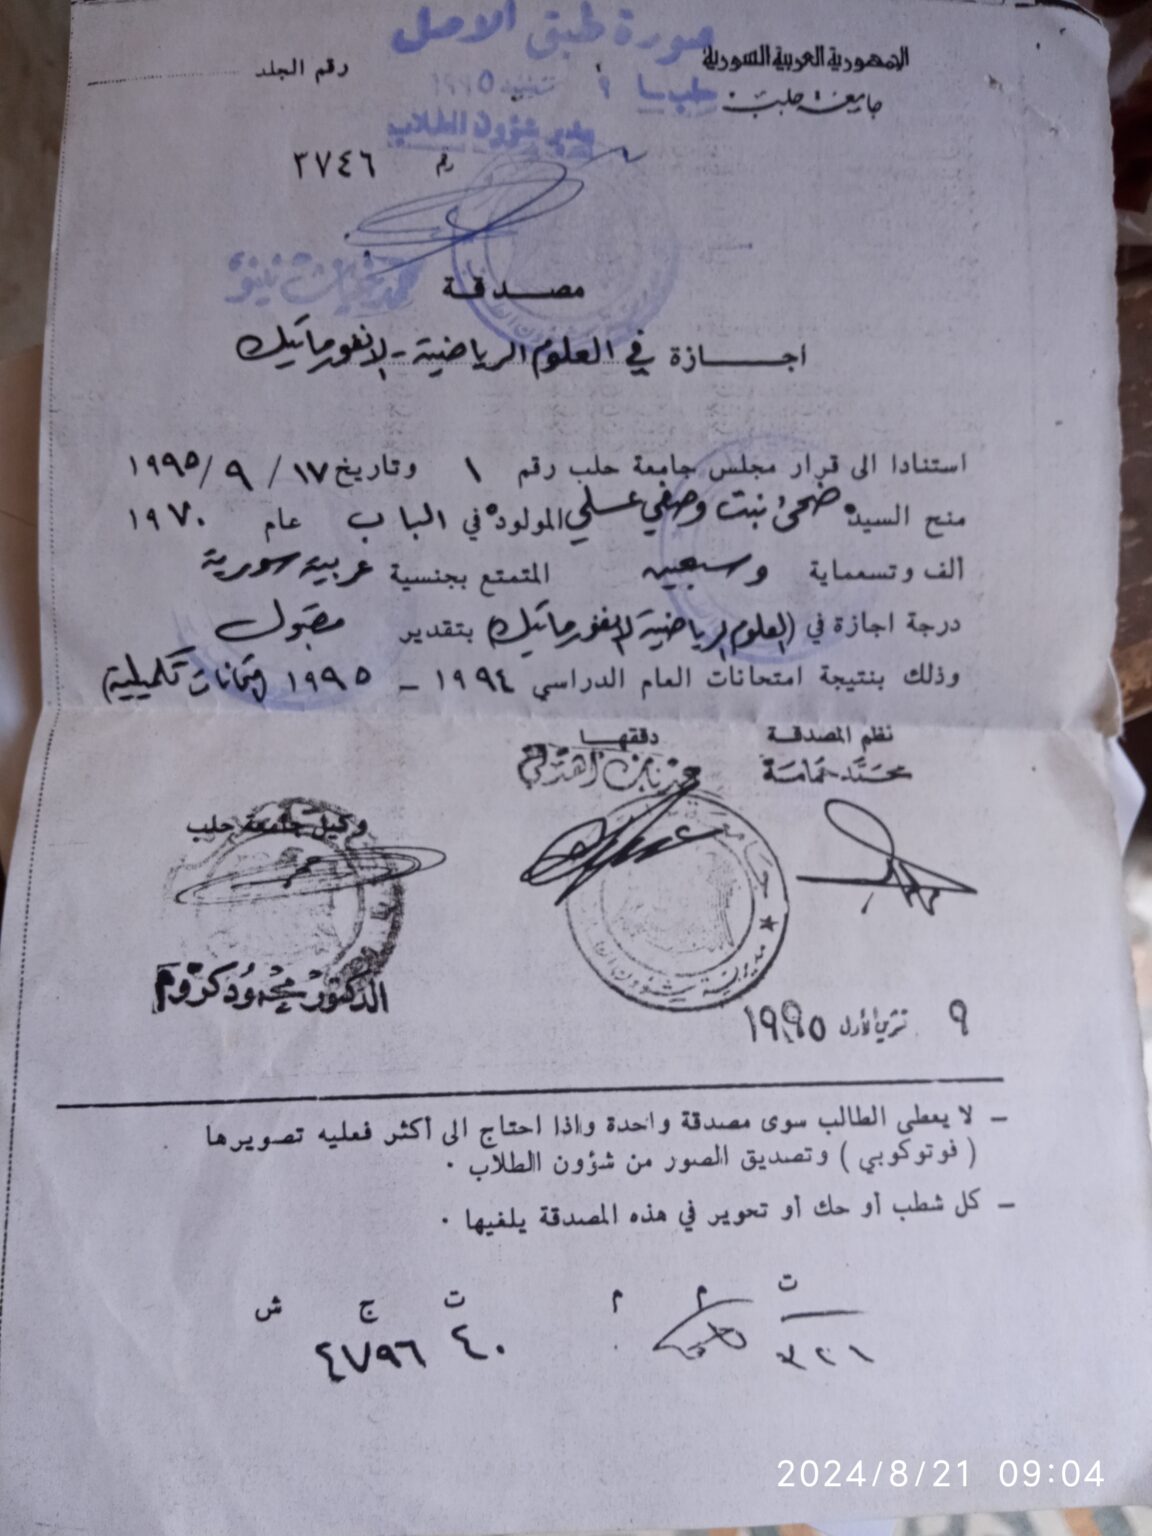 صورة طبق الاصل
الجمهورية العربية السورية
جامعة حلب
رقم الجلد
حلب في ٩ ١٩٩٥
مدير شؤون الطلاب
رقم ٣٧٤٦
مصدقة
اجازة في العلوم الرياضية - الانفورماتيك
استنادا الى قرار مجلس جامعة حلب رقم ١ وتاريخ ١٧ / ٩ / ١٩٩٥
منح السيدة ضحى بنت وصفي عسلي المولودة في الباب عام ١٩٧٠
ألف وتسعماية وسبعين المتمتع بجنسية عربية سورية
درجة اجازة في (العلوم الرياضية الانفورماتيك) بتقدير مقبول
وذلك بنتيجة امتحانات العام الدراسي ١٩٩٤ - ١٩٩٥ (امتحانات تكميلية)
نظم المصدقة
دققها
محمد حمامة
وكيل جامعة حلب
الدكتور محمود كروم
مديرية شؤون الطلاب
٩ تشرين الأول ١٩٩٥
- لا يعطى الطالب سوى مصدقة واحدة واذا احتاج الى أكثر فعليه تصويرها
( فوتوكوبي ) وتصديق الصور من شؤون الطلاب .
- كل شطب أو حك أو تحوير في هذه المصدقة يلغيها .
ت م م ت ج ش
٤٠ ٤٧٩٦
2024/8/21 09:04